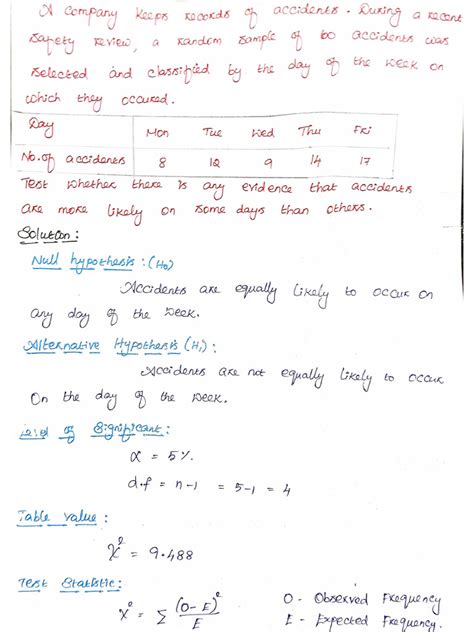 A company keeps records of accidents. During a recent
safety review, a random sample of 60 accidents was
selected and classified by the day of the week on
which they occured.
Day Mon Tue Wed Thu Fri
No. of accidents 8 12 9 14 17
Test whether there is any evidence that accidents
are more likely on some days than others.
Solution:
Null hypothesis: (H₀)
Accidents are equally likely to occur on
any day of the week.
Alternative Hypothesis (H₁):
Accidents are not equally likely to occur
On the day of the week.
of Significant:
α = 5%
d.f = n-1 = 5-1 = 4
Table value:
χ² = 9.488
Test Statistic:
χ² = Σ (O-E)²/E O - Observed Frequency
E - Expected Frequency.